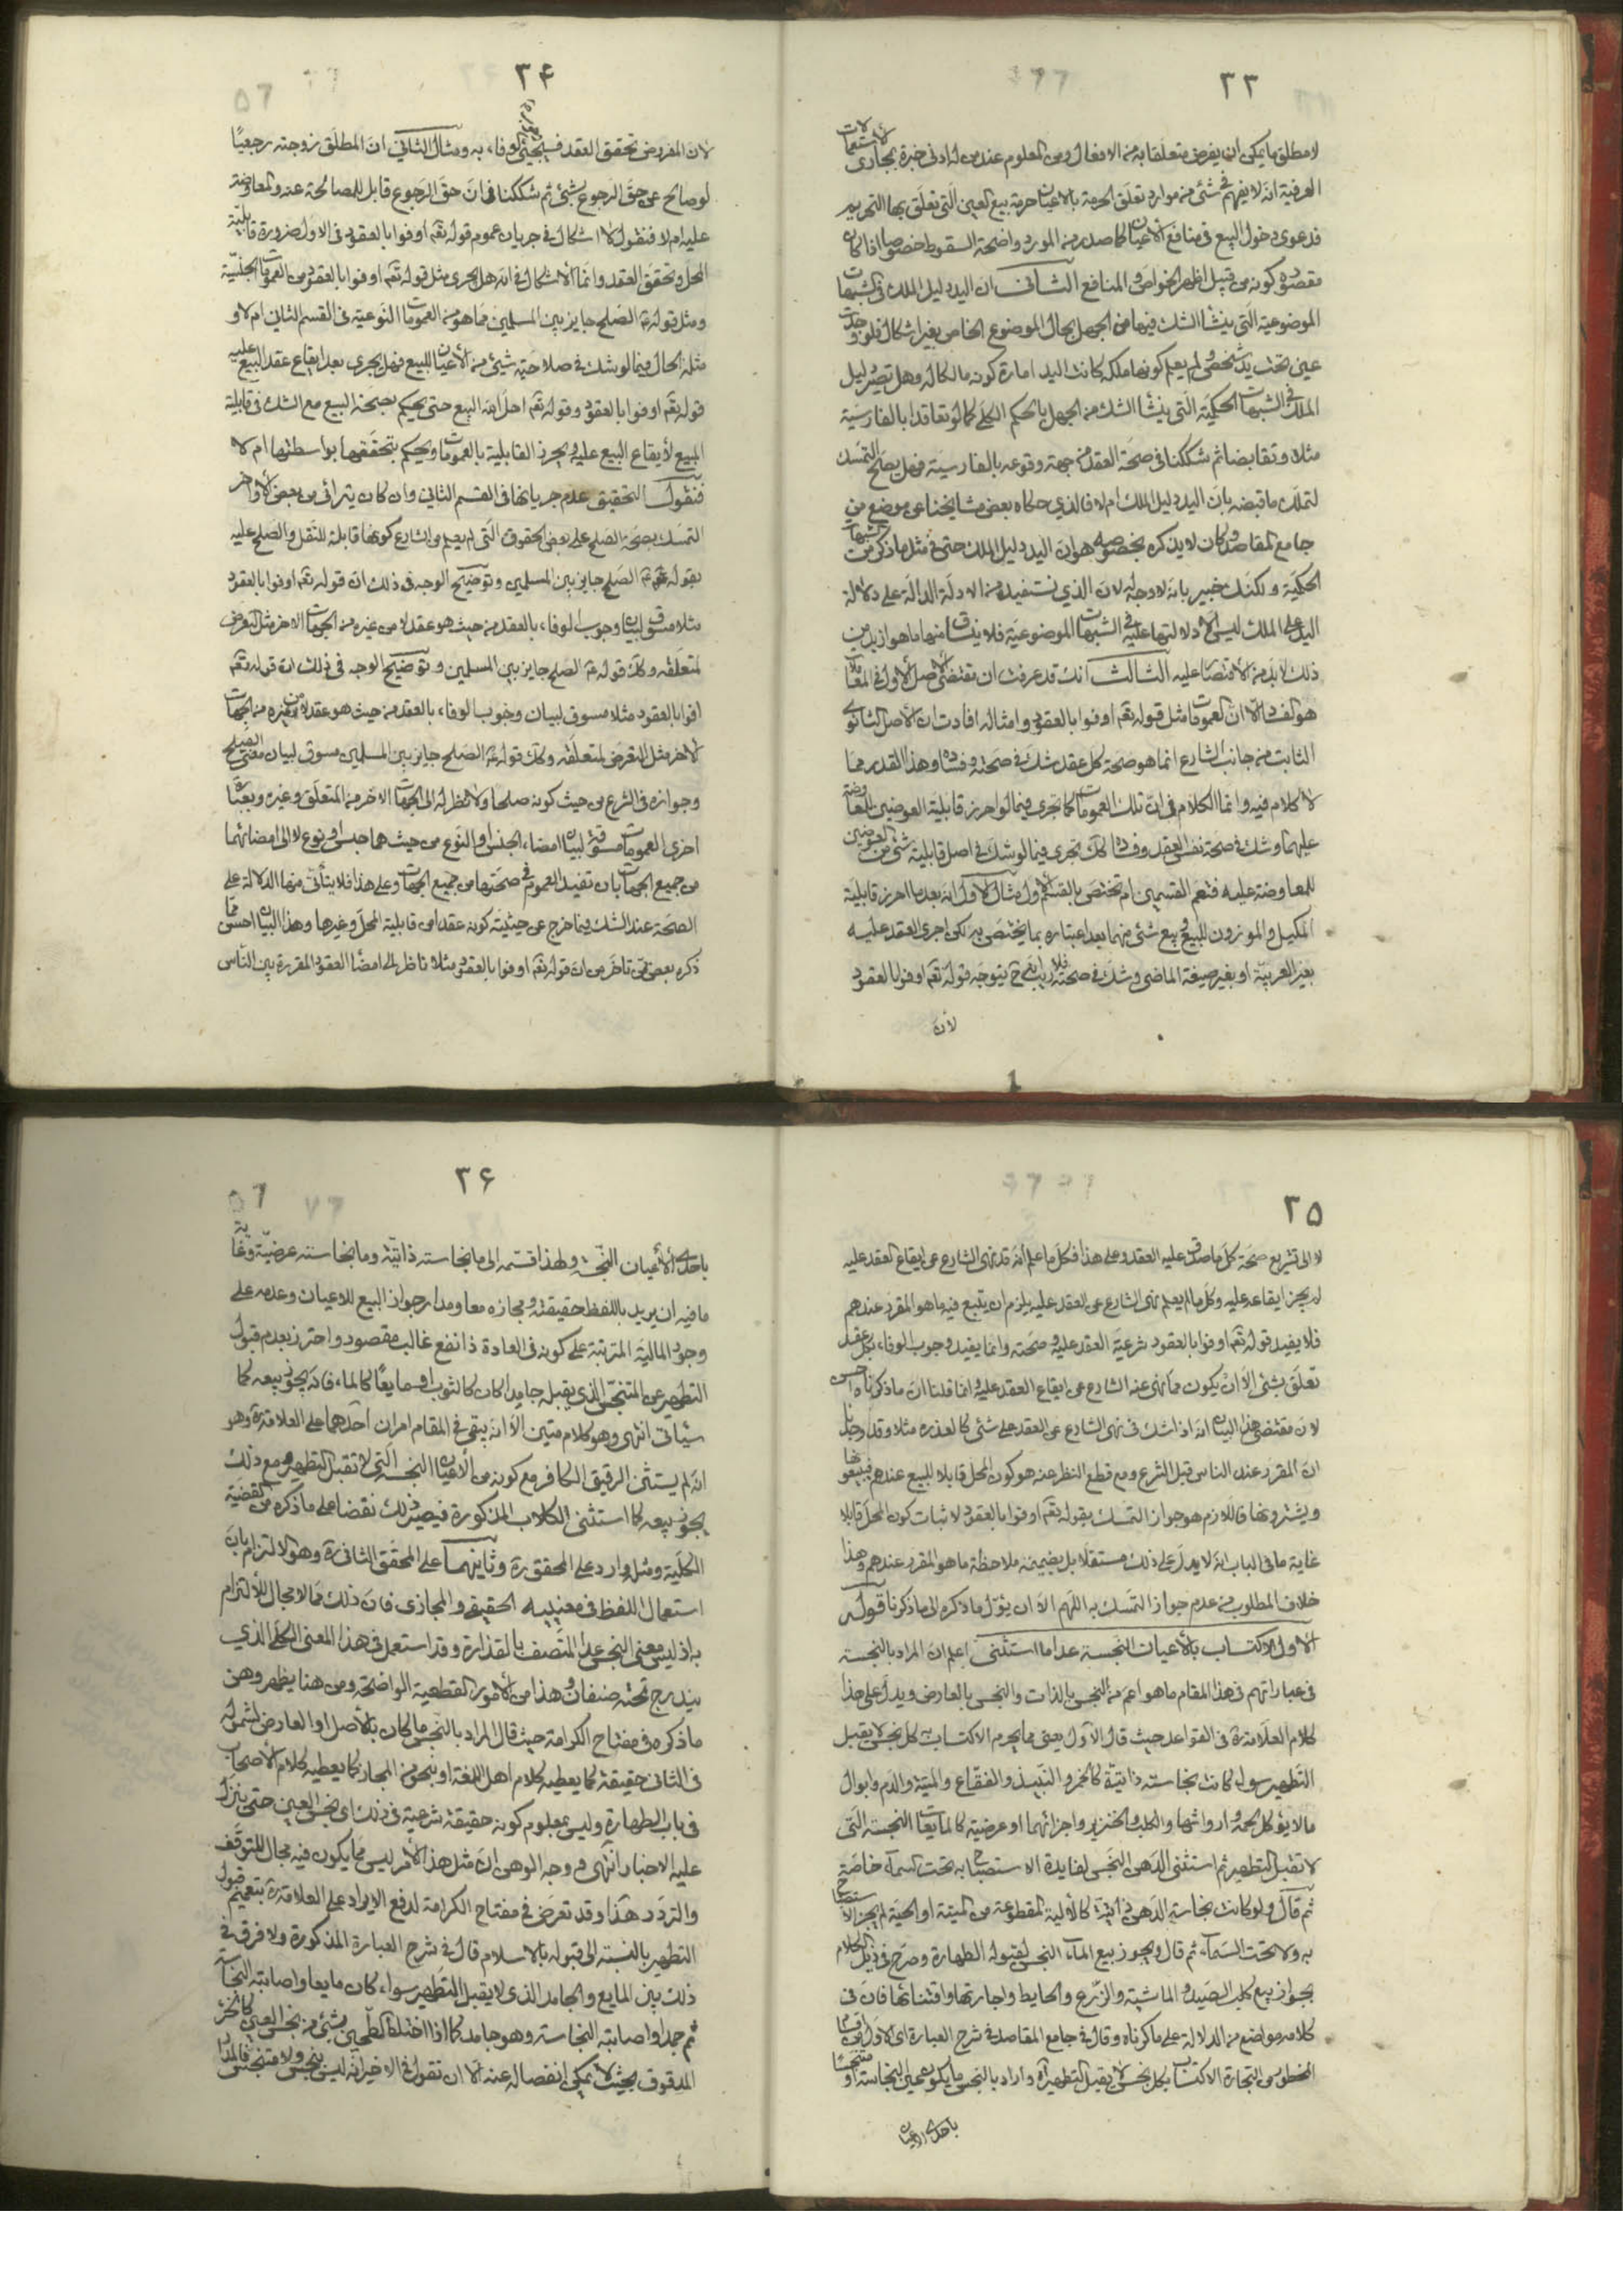 ٣٣
لا مطلق ما يمكن ان يفرض متعلقا به من الافعال ومن المعلوم عند من له ادنى خبرة بمجارى الاستعمالات
العرفية انه لا يفهم فى شئ من موارد تعلق الحرمة بالاعيان حرمة بيع العين التى تعلق بها التحريم
فدعوى دخول البيع فى منافع الاعيان كما صدر من المورد واضحة السقوط خصوصا اذا كان
مقصوده كونه من قبيل اظهر الخواص والمنافع الثانى ان اليد دليل الملك فى الشبهات
الموضوعية التى ينشأ الشك فيها من الجهل بحال الموضوع الخاص بغير اشكال فلو وجدت
عين تحت يد شخص ولم يعلم كونها ملكه كانت اليد امارة كونه مالكا له وهل تصير دليل
الملك فى الشبهات الحكمية التى ينشأ الشك من الجهل بالحكم الكلى كما لو تعاقدا بالفارسية
مثلا وتقابضا ثم شككنا فى صحة العقد من جهة وقوعه بالفارسية فهل يصلح التمسك
لتملك ما قبضه بان اليد دليل الملك ام لا فالذي حكاه بعض مشايخنا عن موضع من
جامع المقاصد وكان لا يذكره بخصوصه هو ان اليد دليل الملك حتى فى مثل ما ذكر من الشبهات
الحكمية ولكنك خبير بانه لا وجه له لان الذي نستفيده من الادلة الدالة على دلالة
اليد على الملك ليس الا دلالتها عليه فى الشبهات الموضوعية فلا ينساق منها ما هو ازيد من
ذلك لا بد من الاقتصار عليه الثالث انك قد عرفت ان مقتضى الاصل الأولى فى المعاملات
هو الفساد الا ان العمومات مثل قوله تعـ اوفوا بالعقود وامثاله افادت ان الأصل الثانوي
الثابت من جانب الشارع انما هو صحة كل عقد شك فى صحته وفساده وهذا القدر مما
لا كلام فيه وانما الكلام فى ان تلك العمومات كما تجرى فيما لو احرز قابلية العوضين للمعاوضة
عليهما وشك فى صحة نفس العقد وفساده كك تجرى فيما لو شك فى اصل قابلية شئ من العوضين
للمعاوضة عليه فتعم القسمين ام تختص بالقسم الأول مثال الأول انه بعد ما احرز قابلية
المكيل والموزون للبيع وبيع شئ منهما بعد اعتباره بما يختص به لكن اجرى العقد عليه
بغير العربية او بغير صيغة الماضى وشك فى صحته فلا ريب فى انه ح يتوجه قوله تعـ اوفوا بالعقود
لان
٣۴
لان المفروض تحقق العقد فيجئ الوفاء به ومثال الثانى ان المطلق زوجته رجعيًا
لو صالح عن حق الرجوع بشئ ثم شككنا فى ان حق الرجوع قابل للمصالحة عنه والمعاوضة
عليه ام لا فنقول لا اشكال فى جريان عموم قوله تعـ اوفوا بالعقود فى الاول ضرورة قابلية
المحل وتحقق العقد وانما الأشكال فى انه هل يجرى مثل قوله تعـ اوفوا بالعقود من العمومات الجنسية
ومثل قوله عـ الصلح جايز بين المسلمين مما هو من العمومات النوعية فى القسم الثانى ام لا و
مثله الحال فيما لو شك فى صلاحية شيئ من الأعيان للبيع فهل يجرى بعد ايقاع عقد البيع عليه
قوله تعـ اوفوا بالعقود وقوله تعـ احل الله البيع حتى يحكم بصحة البيع مع الشك فى قابلية
المبيع لأيقاع البيع عليه ويحرز القابلية بالعمومات ويحكم بتحققها بواسطتها ام لا
فنقول التحقيق عدم جريانها فى القسم الثانى وان كان يترائى من بعض الأواخر
التمسك بصحة الصلح على بعض الحقوق التى لم يعلم من الشارع كونها قابلة للنقل والصلح عليه
بقوله عـ الصلح جايز بين المسلمين وتوضيح الوجه فى ذلك ان قوله تعـ اوفوا بالعقود
مثلا مسوق لبيان وجوب الوفاء بالعقد من حيث هو عقد لا من غيره من الجهات الاخر مثل التعرض
لمتعلقه وكك قوله عـ الصلح جايز بين المسلمين وتوضيح الوجه فى ذلك ان قوله تعـ
اوفوا بالعقود مثلا مسوق لبيان وجوب الوفاء بالعقد من حيث هو عقد لا من غيره من الجهات
الاخر مثل التعرض لمتعلقه وكك قوله عـ الصلح جايز بين المسلمين مسوق لبيان مضى الصلح
وجوازه فى الشرع من حيث كونه صلحا ولا نظر له الى الجهات الاخر من المتعلق وغيره وبعبارة
اخرى العمومات مسوقة لبيان امضاء الجنس او النوع من حيث هما جنس او نوع لا الى امضائهما
من جميع الجهات بان تفيد العموم فى صحتها من جميع الجهات وعلى هذا فلا يتأتى منها الدلالة على
الصحة عند الشك فيما خرج عن حيثية كونه عقدا من قابلية المحل وغيرها وهذا البيان احسن مما
ذكره بعض من تاخر من ان قوله تعـ اوفوا بالعقود مثلا ناظر الى امضاء العقود المقررة بين الناس
٣۵
لا الى تشريع صحة كل ما صدق عليه العقد وعلى هذا فكل ما علم أنه قد نهى الشارع عن ايقاع العقد عليه
لم يجز ايقاعه عليه وكل ما لم يعلم نهى الشارع عن العقد عليه يلزم ان يتبع فيه ما هو المقرر عندهم
فلا يفيد قوله تعـ اوفوا بالعقود شرعية العقد عليه وصحته وانما يفيد وجوب الوفاء بكل عقد
تعلق بشئ الا ان يكون مما نهى عنه الشارع عن ايقاع العقد عليه وانما قلنا ان ما ذكرناه احسن
لان مقتضى هذا البيان انه اذا شك فى نهى الشارع عن العقد على شئ كالعذرة مثلا وقد وجدنا
ان المقرر عند الناس قبل الشرع ومع قطع النظر عنه هو كون المحل قابلا للبيع عندهم فيبيعونها
ويشترونها فاللازم هو جواز التمسك بقوله تعـ اوفوا بالعقود لاثبات كون المحل قابلا
غاية ما فى الباب انه لا يدل على ذلك مستقلا بل بضميمة ملاحظة ما هو المقرر عندهم وهذا
خلاف المطلوب من عدم جواز التمسك به اللهم الا ان يؤل ما ذكره الى ما ذكرنا قوله
الأول الاكتساب بالأعيان النجسة عدا ما استثنى اعلم ان المراد بالنجسة
فى عباراتهم فى هذا المقام ما هو اعم من النجس بالذات والنجس بالعارض ويدل على هذا
كلام العلامة ره فى القواعد حيث قال الاول يعنى مما يحرم الاكتساب به كل نجس لا يقبل
التطهير سواء كانت نجاسته ذاتية كالخمر والنبيذ والفقاع والميتة والدم وابوال
ما لا يؤكل لحمه وارواثها والكلب والخنزير واجزائهما او عرضية كالمايعات النجسة التى
لا تقبل التطهير ثم استثنى الدهن النجس لفايدة الاستصباح به تحت السماء خاصة
ثم قال ولو كانت نجاسة الدهن ذاتية كالألية المقطوعة من الميتة او الحية لم يجز الاستصباح
به ولا تحت السماء ثم قال ويجوز بيع الماء النجس لقبوله الطهارة وصرح فى ذيل الكلام
بجواز بيع كلب الصيد والماشية والزرع والحايط واجارتها واقتنائها فان فى
كلامه مواضع من الدلالة على ما ذكرناه وقال فى جامع المقاصد فى شرح العبارة اى الاول من اقسام
المحظور من التجارة الاكتساب بكل نجس لا يقبل التطهير اه وأراد بالنجس ما يكون عين النجاسة او متنجسا
باحدى الاعيان
٣۶
باحدى الأعيان النجسة ولهذا قسمه الى ما نجاسته ذاتية وما نجاسته عرضية وغاية
ما فيه ان يريد باللفظ حقيقته ومجازه معا ومدار جواز البيع للاعيان وعدمه على
وجود المالية المترتبة على كونه فى العادة ذا نفع غالب مقصود واحترز بعدم قبول
التطهير عن المتنجس الذى يقبله جامدا كان كالثوب او مايعًا كالماء فانه يجوز بيعه كما
سيأتى انتهى وهو كلام متين الا انه يبقى فى المقام امران احدهما على العلامة ره وهو
انه لم يستثن الرقيق الكافر مع كونه من الأعيان النجسة التى لا تقبل التطهير ومع ذلك
يجوز بيعه كما استثنى الكلاب المذكورة فيصير ذلك نقضا على ما ذكره من القضية
الكلية ومثله وارد على المحقق ره وثانيهما على المحقق الثانى ره وهو الالتزام بان
استعمال اللفظ فى معنييه الحقيقى والمجازى فان ذلك مما لا مجال للألتزام
به اذ ليس معنى النجس عدا المتصف بالقذارة وقد استعمل فى هذا المعنى الكلى الذي
يندرج تحته صنفان وهذا من الأمور القطعية الواضحة ومن هنا يظهر وهن
ما ذكره فى مفتاح الكرامة حيث قال المراد بالنجس ما كان بالأصل او العارض لشموله
فى الثانى حقيقة كما يعطيه كلام اهل اللغة او بنحو من المجاز كما يعطيه كلام الأصحاب
فى باب الطهارة وليس بمعلوم كونه حقيقة شرعية فى ذلك اى نجس العين حتى ينزل
عليه الاخبار انتهى ووجه الوهن ان مثل هذا الأمر ليس مما يكون فيه مجال للتوقف
والتردد هذا وقد تعرض فى مفتاح الكرامة لدفع الايراد على العلامة ره بتعميم قبول
التطهير بالنسبة الى قبوله بالاسلام قال فى شرح العبارة المذكورة ولا فرق فى
ذلك بين المايع والجامد الذى لا يقبل التطهير سواء كان مايعا واصابته النجاسة
ثم جمد او اصابته النجاسة وهو جامد كما اذا اختلط كالطحين بشئ من نجس العين كالخزء
المدقوق بحيث لا يمكن انفصاله عنه الا ان نقول فى الاخير انه ليس بنجس ولا متنجس فالمدار